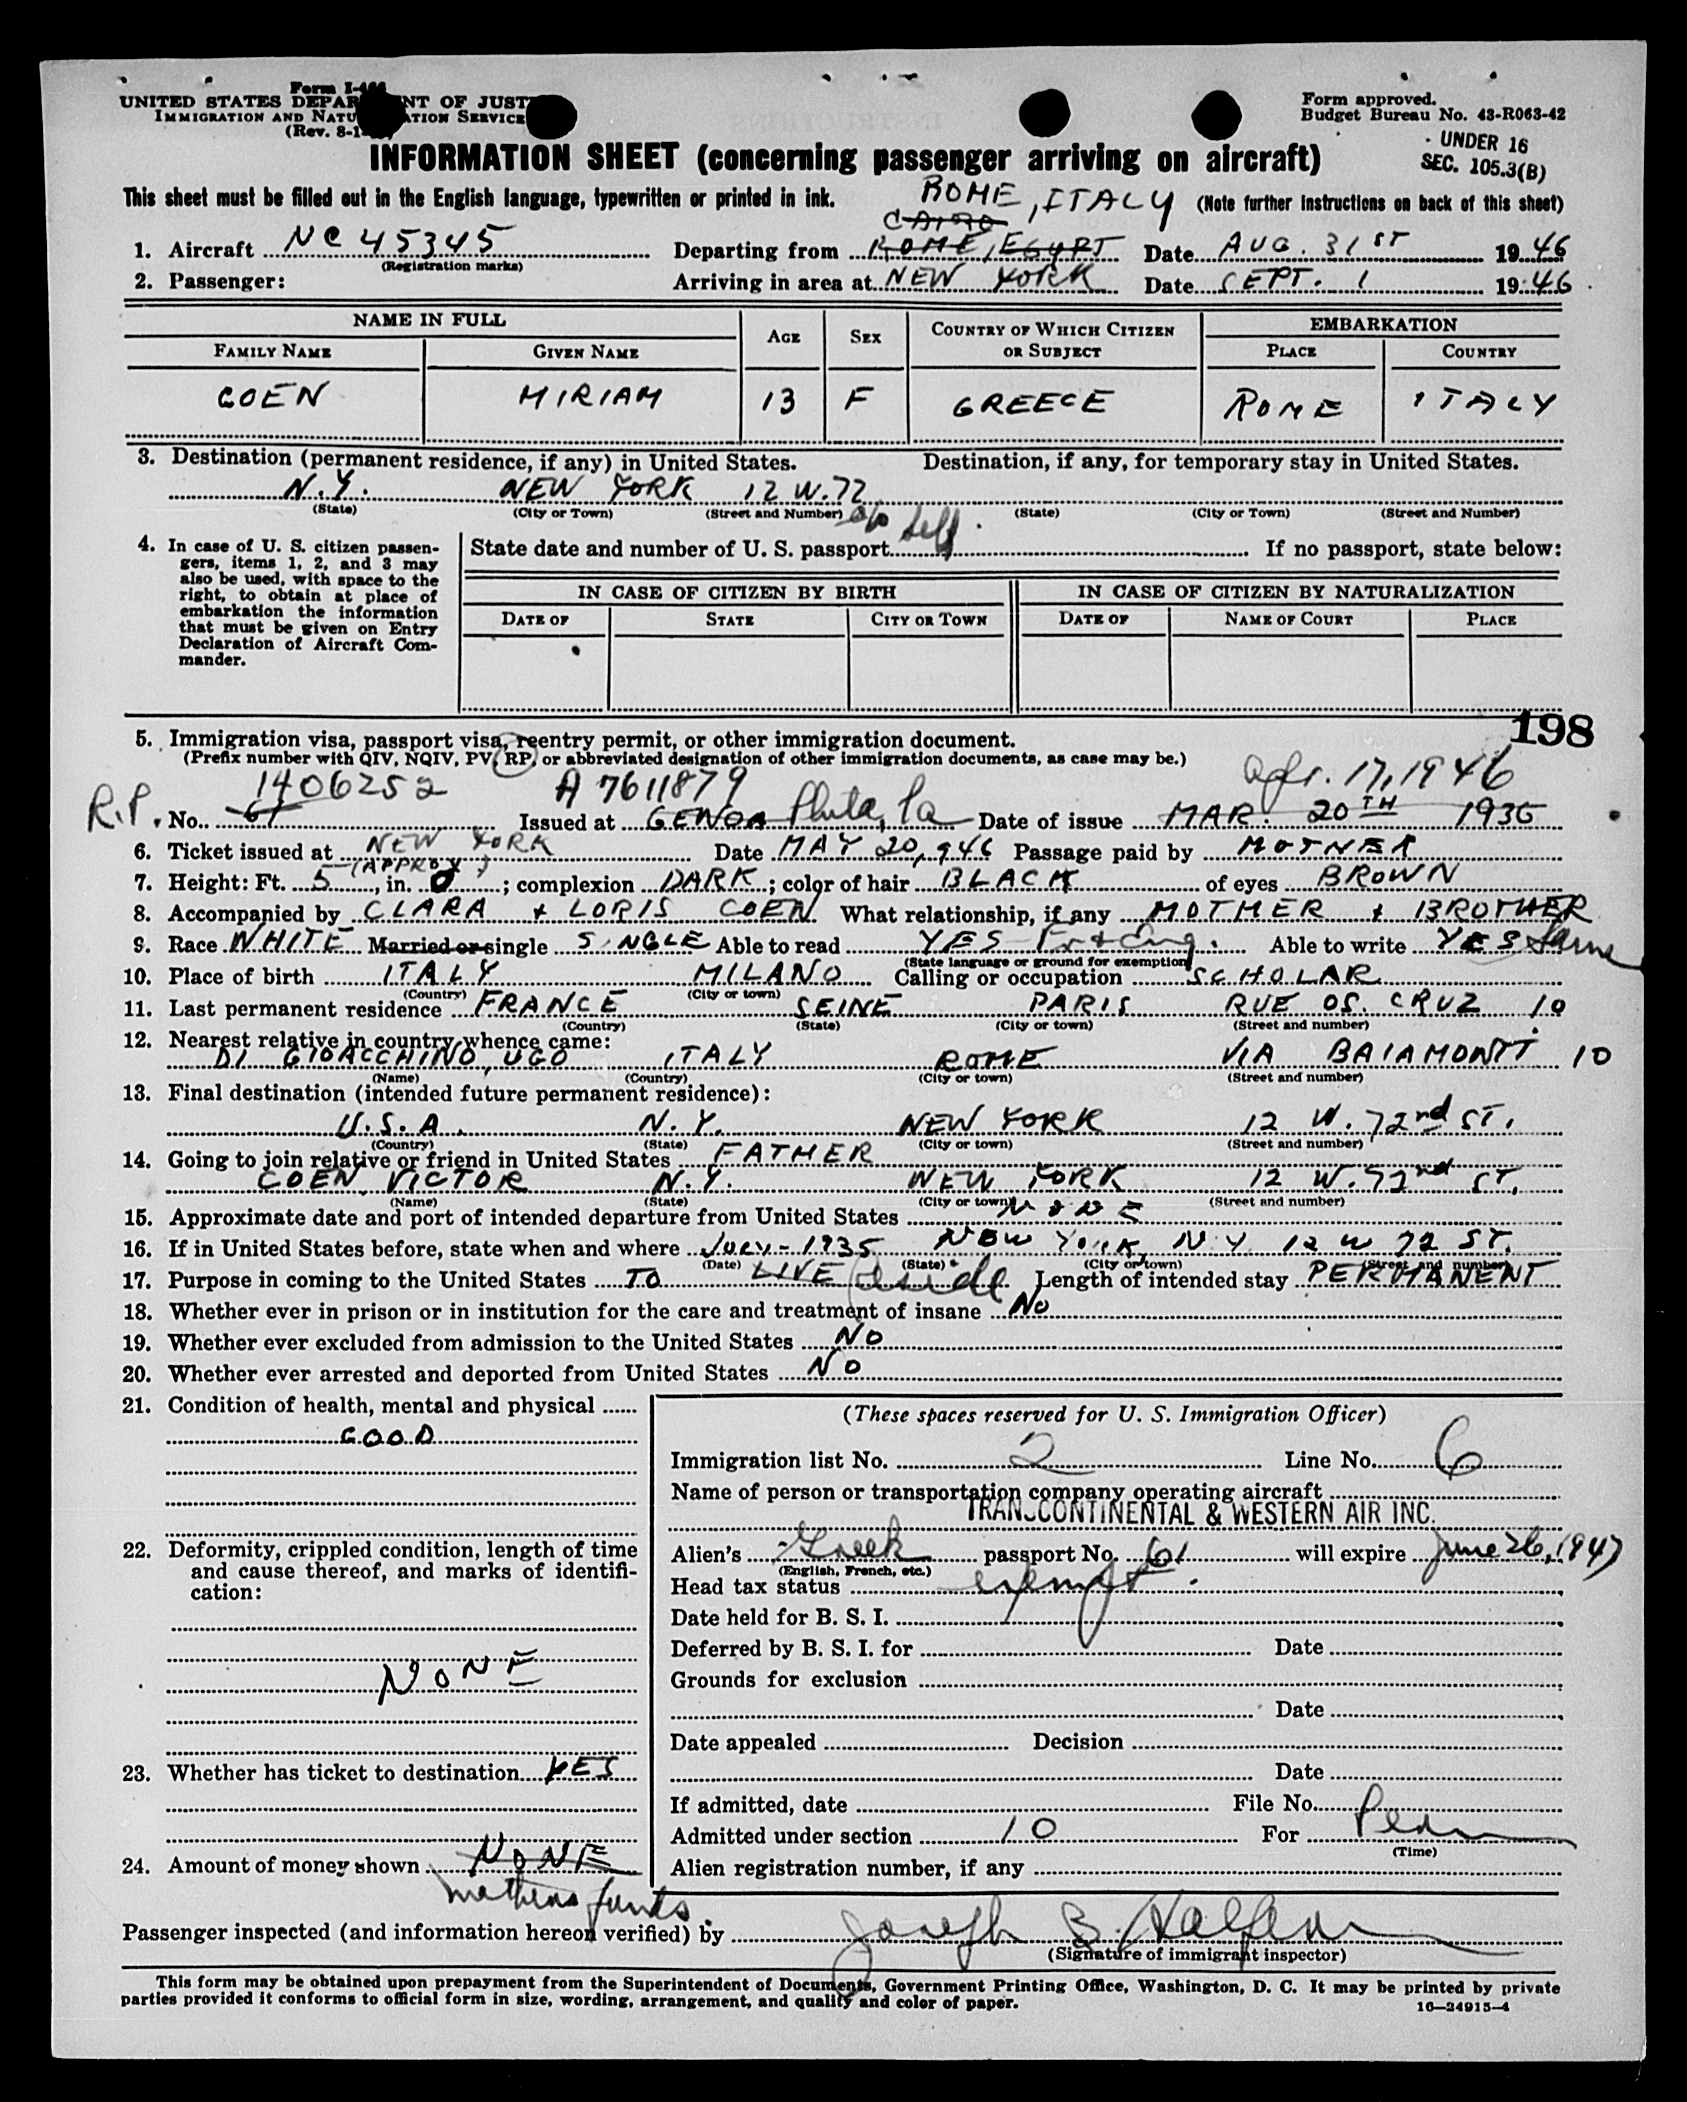 Form I-466
UNITED STATES DEPARTMENT OF JUSTICE
IMMIGRATION AND NATURALIZATION SERVICE
(Rev. 8-1-
Form approved.
Budget Bureau No. 43-R063-42
UNDER 16
SEC. 105.3(B)
INFORMATION SHEET (concerning passenger arriving on aircraft)
This sheet must be filled out in the English language, typewritten or printed in ink.
ROME, ITALY (Note further instructions on back of this sheet)
CAIRO
1. Aircraft NC 45345 Departing from ROME, EGYPT Date AUG. 31ST 1946
(Registration marks)
2. Passenger: Arriving in area at NEW YORK Date SEPT. 1 1946
NAME IN FULL AGE SEX COUNTRY OF WHICH CITIZEN OR SUBJECT EMBARKATION
FAMILY NAME GIVEN NAME PLACE COUNTRY
COEN MIRIAM 13 F GREECE ROME ITALY
3. Destination (permanent residence, if any) in United States. Destination, if any, for temporary stay in United States.
N.Y. NEW YORK 12 W. 72
(State) (City or Town) (Street and Number) (State) (City or Town) (Street and Number)
4. In case of U. S. citizen passengers, items 1, 2, and 3 may also be used, with space to the right, to obtain at place of embarkation the information that must be given on Entry Declaration of Aircraft Commander.
State date and number of U. S. passport If no passport, state below:
IN CASE OF CITIZEN BY BIRTH IN CASE OF CITIZEN BY NATURALIZATION
DATE OF STATE CITY OR TOWN DATE OF NAME OF COURT PLACE
198
5. Immigration visa, passport visa, reentry permit, or other immigration document.
(Prefix number with QIV, NQIV, PV, RP, or abbreviated designation of other immigration documents, as case may be.)
1406252 A 7611879 Apr. 17, 1946
R.P. No. 61 Issued at GENOA Phila, Pa Date of issue MAR. 20TH 1936
6. Ticket issued at NEW YORK Date MAY 20, 946 Passage paid by MOTHER
(APPROX)
7. Height: Ft. 5, in. 0; complexion DARK; color of hair BLACK of eyes BROWN
8. Accompanied by CLARA & LORIS COEN What relationship, if any MOTHER & BROTHER
9. Race WHITE Married or single SINGLE Able to read YES Fr & Eng. Able to write YES Same
(State language or ground for exemption)
10. Place of birth ITALY MILANO Calling or occupation SCHOLAR
(Country) (City or town)
11. Last permanent residence FRANCE SEINE PARIS RUE OS. CRUZ 10
(Country) (State) (City or town) (Street and number)
12. Nearest relative in country whence came:
DI GIOACCHINO, UGO ITALY ROME VIA BAIAMONTI 10
(Name) (Country) (City or town) (Street and number)
13. Final destination (intended future permanent residence):
U.S.A. N.Y. NEW YORK 12 W. 72nd ST.
(Country) (State) (City or town) (Street and number)
14. Going to join relative or friend in United States FATHER
COEN, VICTOR N.Y. NEW YORK 12 W. 72nd ST.
(Name) (State) (City or town) (Street and number)
15. Approximate date and port of intended departure from United States NONE
16. If in United States before, state when and where JULY - 1935 NEW YORK, N.Y. 12 W 72 ST.
(Date) (State) (City or town) (Street and number)
17. Purpose in coming to the United States TO LIVE reside Length of intended stay PERMANENT
18. Whether ever in prison or in institution for the care and treatment of insane No
19. Whether ever excluded from admission to the United States NO
20. Whether ever arrested and deported from United States NO
21. Condition of health, mental and physical
GOOD
22. Deformity, crippled condition, length of time and cause thereof, and marks of identification:
NONE
23. Whether has ticket to destination YES
24. Amount of money shown NONE
mothers funds.
(These spaces reserved for U. S. Immigration Officer)
Immigration list No. 2 Line No. 6
Name of person or transportation company operating aircraft
TRANSCONTINENTAL & WESTERN AIR INC.
Alien's Greek passport No. 61 will expire June 26, 1947
(English, French, etc.)
Head tax status exempt.
Date held for B. S. I.
Deferred by B. S. I. for Date
Grounds for exclusion
Date
Date appealed Decision
Date
If admitted, date File No.
Admitted under section 10 For Perm
(Time)
Alien registration number, if any
Passenger inspected (and information hereon verified) by Joseph B. Halpern
(Signature of immigrant inspector)
This form may be obtained upon prepayment from the Superintendent of Documents, Government Printing Office, Washington, D. C. It may be printed by private
parties provided it conforms to official form in size, wording, arrangement, and quality and color of paper.
16—24915-4